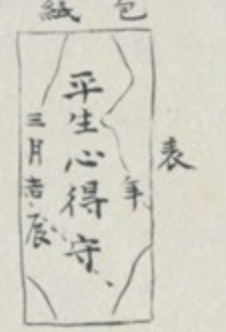 包紙
表
年
平生心得守
三月吉辰